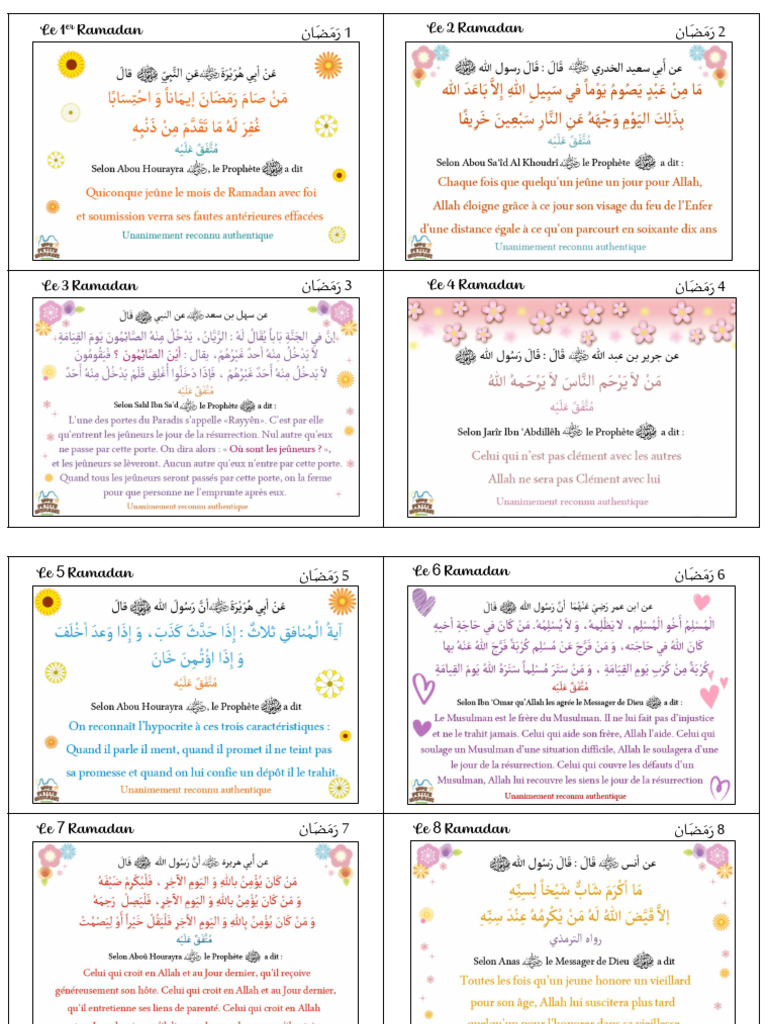 Le 1er Ramadan
1 رَمَضَان
عَنْ أَبِي هُرَيْرَةَ ﷺ عَنِ النَّبِيِّ ﷺ قالَ
مَنْ صَامَ رَمَضَانَ إِيمَاناً وَ احْتِسَابًا
غُفِرَ لَهُ مَا تَقَدَّمَ مِنْ ذَنْبِهِ
مُتَّفَقٌ عَلَيْه
Selon Abou Hourayra , le Prophète ﷺ a dit
Quiconque jeûne le mois de Ramadan avec foi
et soumission verra ses fautes antérieures effacées
Unanimement reconnu authentique
Le 2 Ramadan
2 رَمَضَان
عن أبي سعيد الخدري قَالَ : قَالَ رسول الله ﷺ
مَا مِنْ عَبْدٍ يَصُومُ يَوْماً فِي سَبِيلِ اللهِ إِلاَّ بَاعَدَ الله
بِذَلِكَ اليَوْمِ وَجْهَهُ عَنِ النَّارِ سَبْعِينَ خَرِيفًا
مُتَّفَقٌ عَلَيْه
Selon Abou Sa'îd Al Khoudrî le Prophète ﷺ a dit :
Chaque fois que quelqu'un jeûne un jour pour Allah,
Allah éloigne grâce à ce jour son visage du feu de l'Enfer
d'une distance égale à ce qu'on parcourt en soixante dix ans
Unanimement reconnu authentique
Le 3 Ramadan
3 رَمَضَان
عن سهل بن سعد عن النبي ﷺ قَالَ
إِنَّ فِي الجَنَّةِ بَاباً يُقَالُ لَهُ : الرَّيَّانُ، يَدْخُلُ مِنْهُ الصَّائِمُونَ يَومَ القِيَامَةِ،
لاَ يَدْخُلُ مِنْهُ أَحدٌ غَيْرُهُمْ، يقال : أَيْنَ الصَّائِمُونَ ؟ فَيَقُومُونَ
لاَ يَدخُلُ مِنْهُ أَحَدٌ غَيْرُهُمْ ، فَإِذَا دَخَلُوا أُغْلِقَ فَلَمْ يَدْخُلْ مِنْهُ أَحَدٌ
مُتَّفَقٌ عَلَيْه
Selon Sahl Ibn Sa'd , le Prophète ﷺ a dit :
L'une des portes du Paradis s'appelle «Rayyên». C'est par elle
qu'entrent les jeûneurs le jour de la résurrection. Nul autre qu'eux
ne passe par cette porte. On dira alors : « Où sont les jeûneurs ? »,
et les jeûneurs se lèveront. Aucun autre qu'eux n'entre par cette porte.
Quand tous les jeûneurs seront passés par cette porte, on la ferme
pour que personne ne l'emprunte après eux.
Unanimement reconnu authentique
Le 4 Ramadan
4 رَمَضَان
عن جرير بن عبد الله قَالَ : قَالَ رَسُولُ الله ﷺ
مَنْ لاَ يَرْحَمِ النَّاسَ لاَ يَرْحَمهُ اللهُ
مُتَّفَقٌ عَلَيْه
Selon Jarîr Ibn 'Abdillêh le Prophète ﷺ a dit :
Celui qui n'est pas clément avec les autres
Allah ne sera pas Clément avec lui
Unanimement reconnu authentique
Le 5 Ramadan
5 رَمَضَان
عَنْ أبي هُرَيْرَةَ أنَّ رَسُولَ الله ﷺ قالَ
آيةُ الْمُنافقِ ثلاثٌ : إذَا حَدَّثَ كَذَبَ، وَ إذَا وَعدَ أخْلَفَ
وَ إذَا اؤْتُمِنَ خَانَ
مُتَّفَقٌ عَلَيْه
Selon Abou Hourayra , le Prophète ﷺ a dit :
On reconnaît l'hypocrite à ces trois caractéristiques :
Quand il parle il ment, quand il promet il ne teint pas
sa promesse et quand on lui confie un dépôt il le trahit.
Unanimement reconnu authentique
Le 6 Ramadan
6 رَمَضَان
عن ابن عمر رَضِيَ عَنْهُمَا أنَّ رَسُولَ الله ﷺ قَالَ
الْمُسْلِمُ أَخُو الْمُسْلِمِ، لا يَظْلِمُهُ، وَ لاَ يُسْلِمُهُ. مَنْ كَانَ في حَاجَةِ أخيهِ
كَانَ اللهُ في حَاجَتِهِ، وَ مَنْ فَرَّجَ عَنْ مُسْلِمٍ كُرْبَةً فَرَّجَ اللهُ عَنْهُ بِها
كُرْبَةً مِنْ كُرَبِ يَومِ القِيَامَةِ ، وَ مَنْ سَتَرَ مُسْلِماً سَتَرَهُ اللهُ يَومَ القِيَامَةِ
مُتَّفَقٌ عَلَيْه
Selon Ibn 'Omar qu'Allah les agrée le Messager de Dieu ﷺ a dit :
Le Musulman est le frère du Musulman. Il ne lui fait pas d'injustice
et ne le trahit jamais. Celui qui aide son frère, Allah l'aide. Celui qui
soulage un Musulman d'une situation difficile, Allah le soulagera d'une
le jour de la résurrection. Celui qui couvre les défauts d'un
Musulman, Allah lui recouvre les siens le jour de la résurrection
Unanimement reconnu authentique
Le 7 Ramadan
7 رَمَضَان
عن أبي هريرة أنَّ رَسُولَ الله ﷺ قَالَ
مَنْ كَانَ يُؤْمِنُ بِاللهِ وَ اليَوْمِ الآخِرِ ، فَلْيُكْرِمْ ضَيْفَهُ
وَ مَنْ كَانَ يُؤْمِنُ بِاللهِ وَ اليَوْمِ الآخِرِ فَلْيَصِلْ رَحِمَهُ
وَ مَنْ كَانَ يُؤْمِنُ بِاللهِ وَ اليَوْمِ الآخِرِ فَلْيَقُلْ خَيْراً أَوْ لِيَصْمُتْ
مُتَّفَقٌ عَلَيْه
Selon Aboû Hourayra , le Prophète ﷺ a dit :
Celui qui croit en Allah et au Jour dernier, qu'il reçoive
généreusement son hôte. Celui qui croit en Allah et au Jour dernier,
qu'il entretienne ses liens de parenté. Celui qui croit en Allah
Le 8 Ramadan
8 رَمَضَان
عن أنس قَالَ : قَالَ رَسُولُ الله ﷺ
مَا أكْرَمَ شَابٌّ شَيْخاً لِسِنِّهِ
إلاَّ قَيَّضَ اللهُ لَهُ مَنْ يُكْرِمُهُ عِنْدَ سِنِّه
رواه الترمذي
Selon Anas le Messager de Dieu ﷺ a dit
Toutes les fois qu'un jeune honore un vieillard
pour son âge, Allah lui suscitera plus tard
quelqu'un pour l'honorer dans sa vieillesse